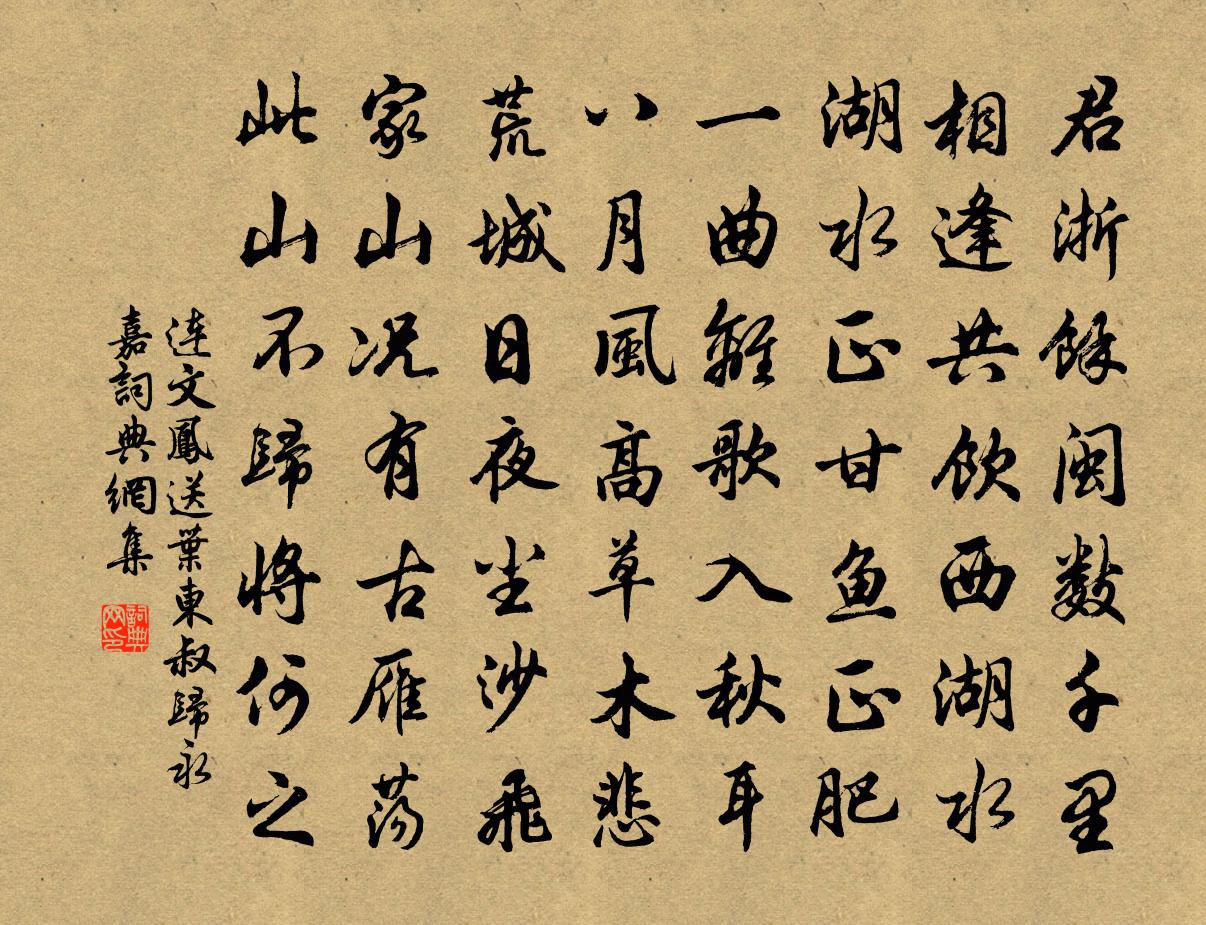 君浙餘閩數千里
相逢共飲西湖水
湖水正甘魚正肥
一曲離歌入秋耳
八月風高草木悲
荒城日夜尘沙飛
家山况有古雁蕩
此山不歸將何之
連文鳳送葉東叔歸永
嘉詞典網集
詞典
网印